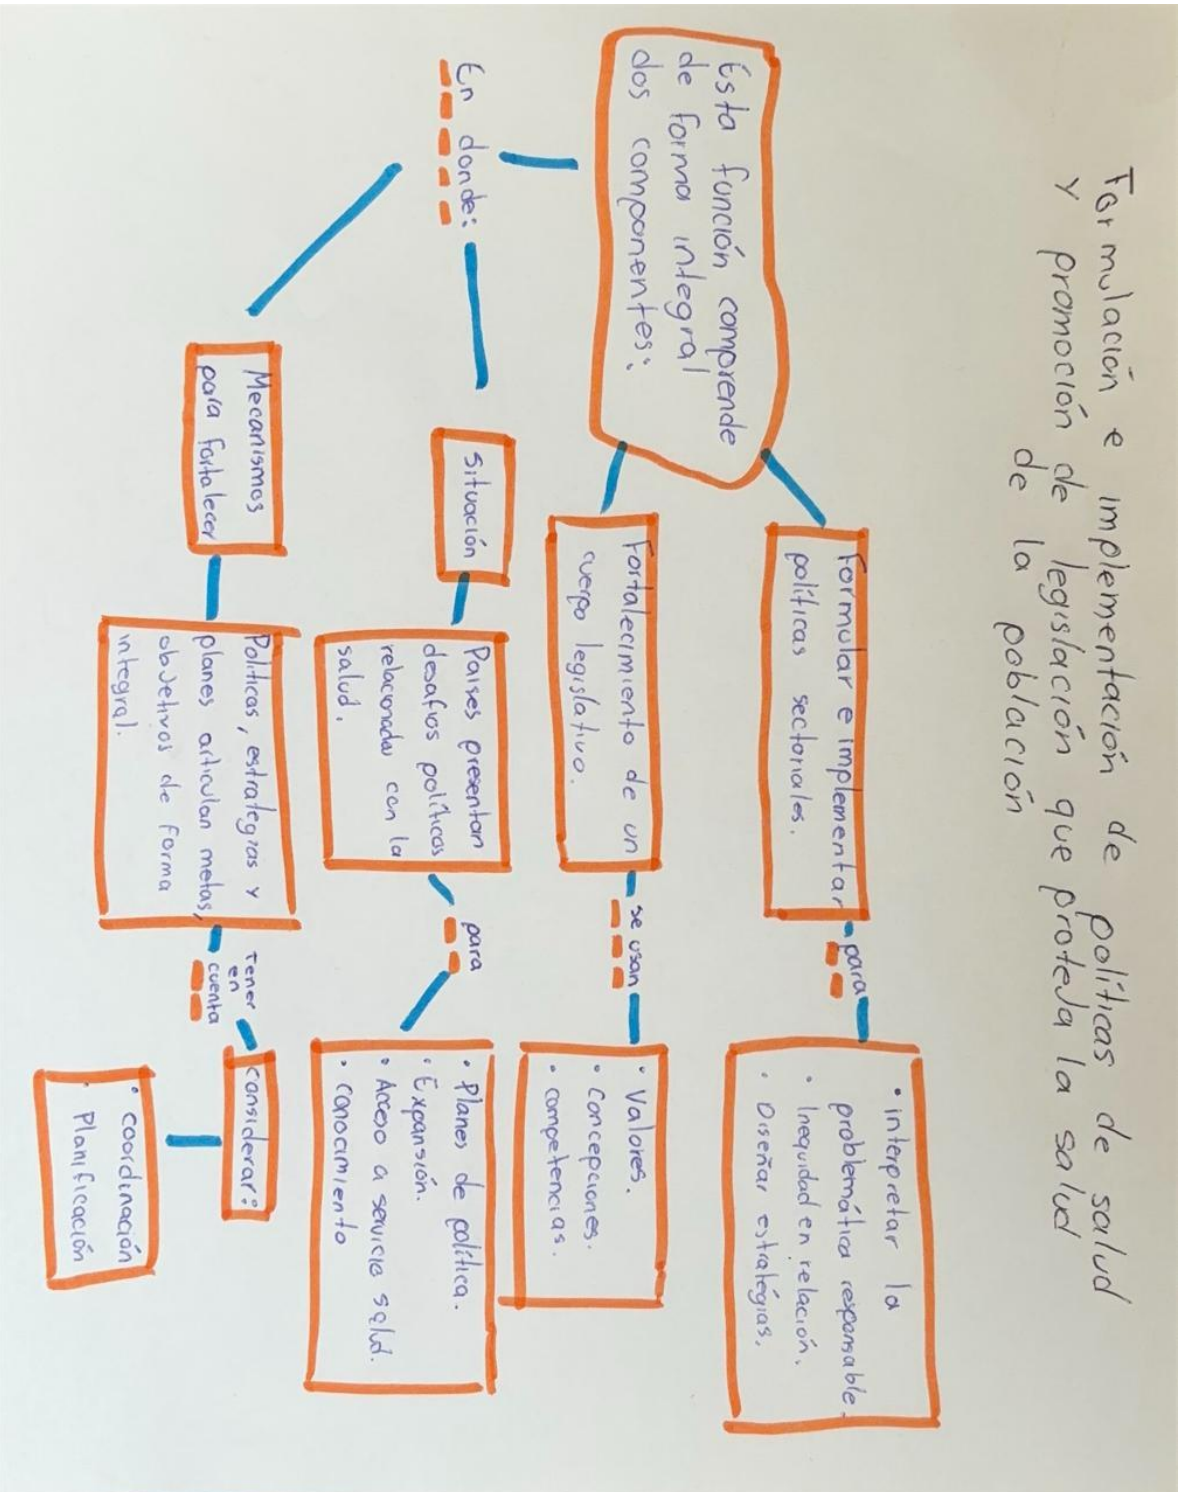 Formulación e implementación de políticas de salud
y promoción de legislación que proteja la salud
de la población
Ésta función comprende
de forma integral
dos componentes:
Formular e implementar
políticas sectoriales.
para
• interpretar la
problemática responsable.
• Inequidad en relación.
• Diseñar estratégias.
Fortalecimiento de un
cuerpo legislativo.
se usan
• Valores.
• Concepciones.
• competencias.
En donde:
Situación
Paises presentan
desafios políticos
relacionados con la
salud.
para
• Planes de política.
• Expansión.
• Acceso a servicio salud.
• conocimiento
Mecanismos
para fortalecer
Politicas, estrategias y
planes articulan metas,
objetivos de forma
integral.
Tener
en
cuenta
considerar:
• coordinación
• Planificación